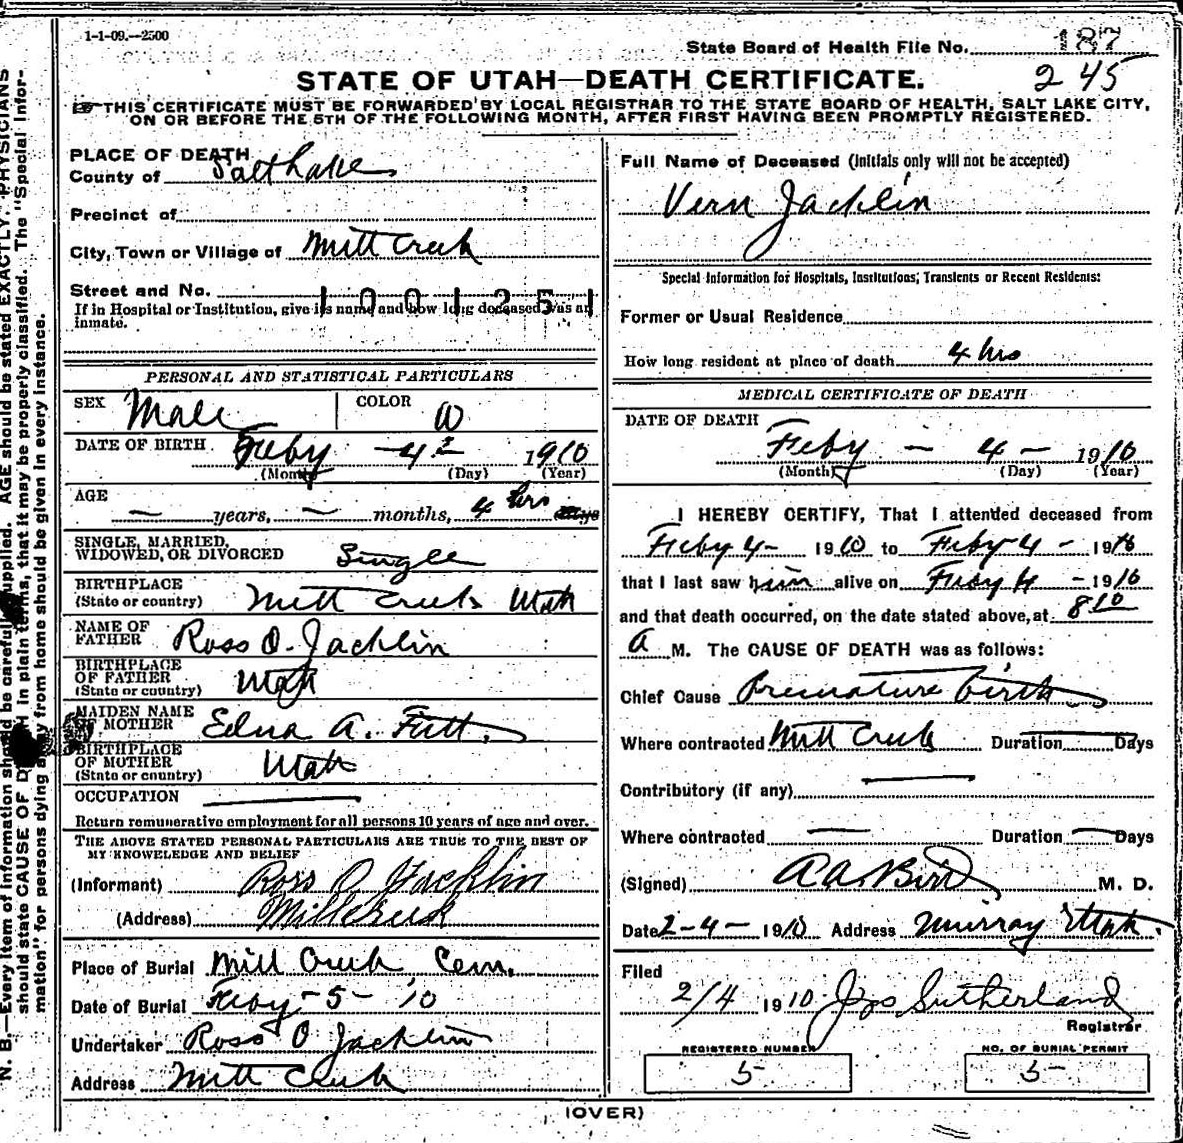 1-1-09.—2500
State Board of Health File No. 187
245
STATE OF UTAH—DEATH CERTIFICATE.
THIS CERTIFICATE MUST BE FORWARDED BY LOCAL REGISTRAR TO THE STATE BOARD OF HEALTH, SALT LAKE CITY,
ON OR BEFORE THE 5TH OF THE FOLLOWING MONTH, AFTER FIRST HAVING BEEN PROMPTLY REGISTERED.
PLACE OF DEATH
County of Salt Lake
Precinct of
City, Town or Village of Mill Creek
Street and No.
1001251
If in Hospital or Institution, give its name and how long deceased was an
inmate.
PERSONAL AND STATISTICAL PARTICULARS
SEX Male COLOR W
DATE OF BIRTH Feby - 4 1910
(Month) (Day) (Year)
AGE
— years, — months, 4 hrs days
SINGLE, MARRIED,
WIDOWED, OR DIVORCED Single
BIRTHPLACE
(State or country) Mill Creek Utah
NAME OF
FATHER Ross O. Jacklin
BIRTHPLACE
OF FATHER
(State or country) Utah
MAIDEN NAME
OF MOTHER Edna A.
BIRTHPLACE
OF MOTHER
(State or country) Utah
OCCUPATION
Return remunerative employment for all persons 10 years of age and over.
THE ABOVE STATED PERSONAL PARTICULARS ARE TRUE TO THE BEST OF
MY KNOWLEDGE AND BELIEF
(Informant) Ross O Jacklin
(Address) Millcreek
Place of Burial Mill Creek Cem.
Date of Burial Feby - 5 - '10
Undertaker Ross O Jacklin
Address Mill Creek
Full Name of Deceased (Initials only will not be accepted)
Vern Jacklin
Special Information for Hospitals, Institutions, Transients or Recent Residents:
Former or Usual Residence
How long resident at place of death 4 hrs
MEDICAL CERTIFICATE OF DEATH
DATE OF DEATH
Feby — 4 — 1910
(Month) (Day) (Year)
I HEREBY CERTIFY, That I attended deceased from
Feby 4 - 1910 to Feby 4 - 1910
that I last saw him alive on Feby 4 - 1910
and that death occurred, on the date stated above, at 8 10
A M. The CAUSE OF DEATH was as follows:
Chief Cause Premature birth
Where contracted Mill Creek Duration Days
Contributory (if any)
Where contracted — Duration — Days
(Signed) A A Bird M. D.
Date 2-4- 1910 Address Murray Utah.
Filed
2/4 1910 Sutherland
Registrar
REGISTERED NUMBER
5
NO. OF BURIAL PERMIT
5
(OVER)
N. B.—Every item of information should be carefully supplied. AGE should be stated EXACTLY. PHYSICIANS
should state CAUSE OF DEATH in plain terms, that it may be properly classified. The "Special Infor-
mation" for persons dying away from home should be given in every instance.